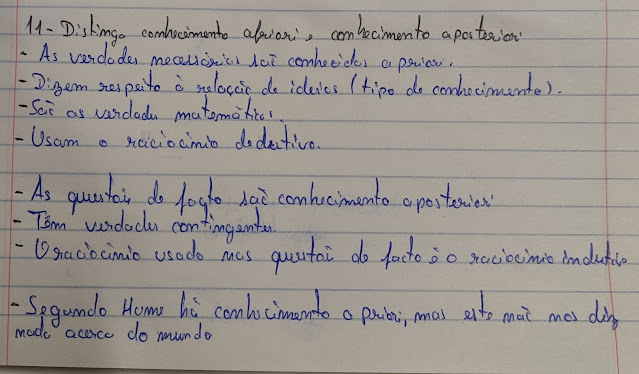 11- Distinga conhecimento a priori e conhecimento a posteriori
- As verdades necessárias saõ conhecidas a priori.
- Dizem respeito à relação de ideias (tipo de conhecimento).
- Saõ as verdades matemáticas.
- Usam o raciocinio dedutivo.
- As questoẽs de facto saõ conhecimento a posteriori
- Têm verdades contingentes.
- O raciocinio usado nas questoẽs de facto é o raciocinio indutivo
- Segundo Hume há conhecimento a priori, mas este naõ nos diz
nada acerca do mundo